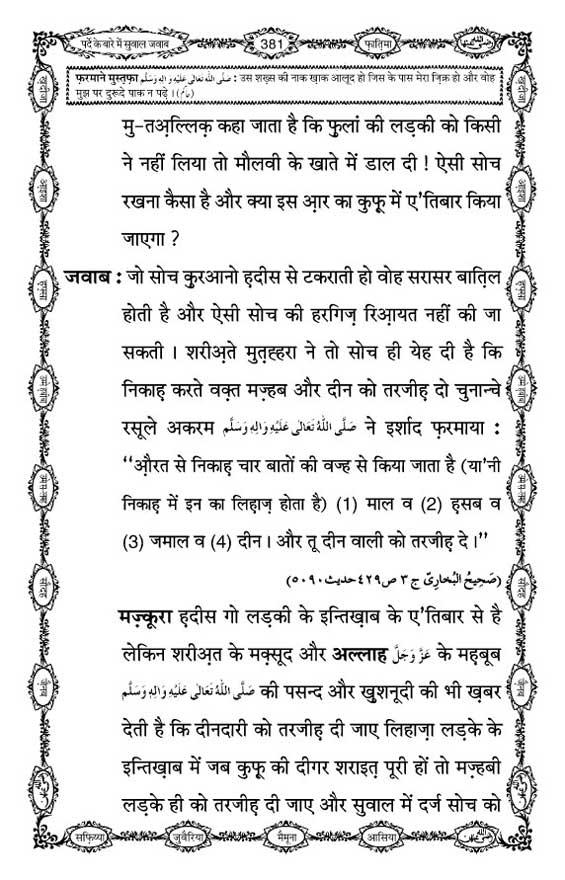 पर्दे के बारे में सुवाल जवाब
381
फ़ातिमा
फ़रमाने मुस्तफ़ा صَلَّى اللهُ تَعَالٰى عَلَيْهِ وَاٰلِهٖ وَسَلَّم : उस शख़्स की नाक ख़ाक आलूद हो जिस के पास मेरा ज़िक्र हो और वोह
मुझ पर दुरूदे पाक न पढ़े । (حاكم)
मु-तअ़ल्लिक़ कहा जाता है कि फुलां की लड़की को किसी
ने नहीं लिया तो मौलवी के खाते में डाल दी ! ऐसी सोच
रखना कैसा है और क्या इस आ़र का कुफू में ए'तिबार किया
जाएगा ?
जवाब : जो सोच कुरआनो ह़दीस से टकराती हो वोह सरासर बात़िल
होती है और ऐसी सोच की हरगिज़ रिआ़यत नहीं की जा
सकती । शरीअ़ते मुत़ह्हरा ने तो सोच ही येह दी है कि
निकाह़ करते वक़्त मज़्हब और दीन को तरजीह़ दो चुनान्चे
रसूले अकरम صَلَّى اللهُ تَعَالٰى عَلَيْهِ وَاٰلِهٖ وَسَلَّم ने इर्शाद फ़रमाया :
‘‘औ़रत से निकाह़ चार बातों की वज्ह से किया जाता है (या'नी
निकाह़ में इन का लिह़ाज़ होता है) (1) माल व (2) ह़सब व
(3) जमाल व (4) दीन । और तू दीन वाली को तरजीह़ दे ।’’
(صَحِيحُ الْبُخارِىّ ج ٣ ص ٤٢٩ حديث ٥٠٩٠)
मज़्कूरा ह़दीस गो लड़की के इन्तिख़ाब के ए'तिबार से है
लेकिन शरीअ़त के मक़्सूद और अल्लाह عَزَّوَجَلَّ के मह़बूब
صَلَّى اللهُ تَعَالٰى عَلَيْهِ وَاٰلِهٖ وَسَلَّم की पसन्द और खुशनूदी की भी ख़बर
देती है कि दीनदारी को तरजीह़ दी जाए लिहाज़ा लड़के के
इन्तिख़ाब में जब कुफू की दीगर शराइत़ पूरी हों तो मज़्हबी
लड़के ही को तरजीह़ दी जाए और सुवाल में दर्ज सोच को
सफ़िय्या
जुवैरिया
मैमूना
आसिया